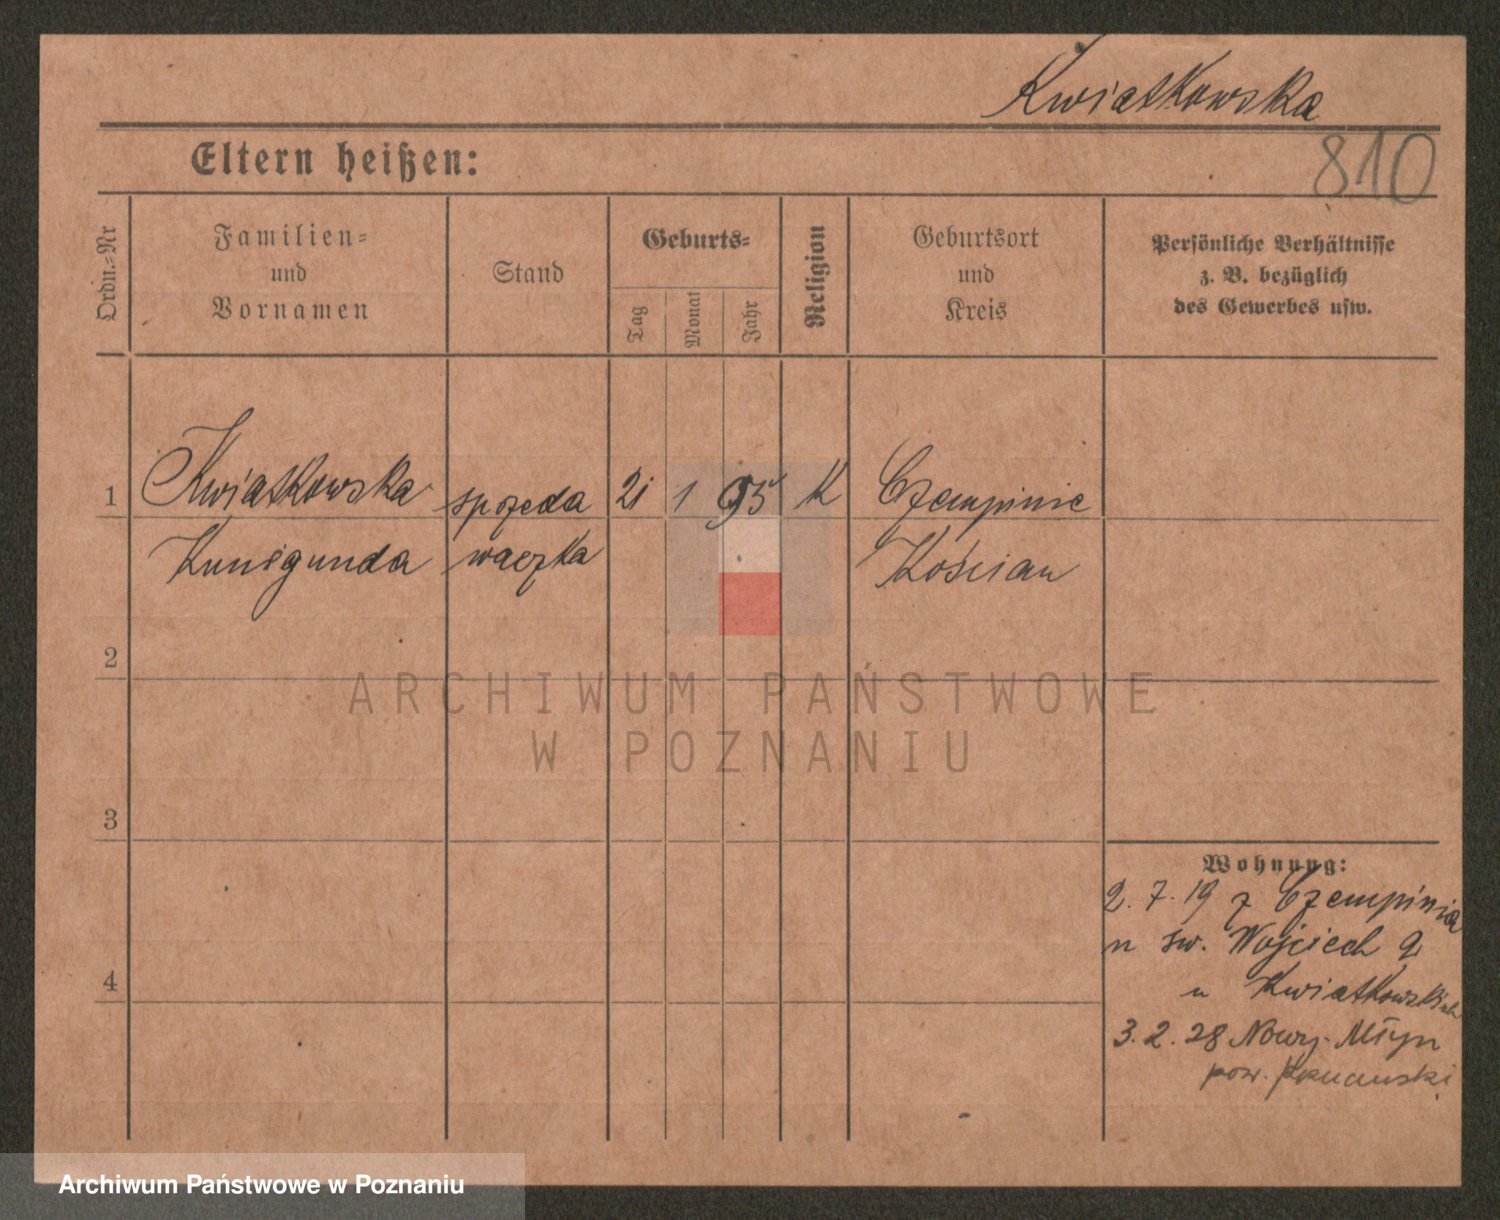 Kwiatkowska
810
Eltern heißen:
Ordn.-Nr
Familien-
und
Vornamen
Stand
Geburts-
Tag
Monat
Jahr
Religion
Geburtsort
und
Kreis
Persönliche Verhältnisse
z. B. bezüglich
des Gewerbes usw.
1 Kwiatkowska sprzeda 21 1 95 K Czempinie
Kunegunda waczka Kościan
2
ARCHIWUM PAŃSTWOWE
W POZNANIU
3
Wohnung:
2. 7. 19 z Czempinia
n św. Wojciech 9
u Kwiatkowskich
4
3. 2. 28 Nowy-Młyn
pow. Poznański
Archiwum Państwowe w Poznaniu